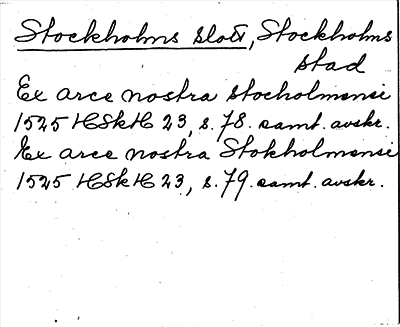 Stockholms slott, Stockholms
stad
Ex arce nostra stocholmensi
1525 HSkH 23, s. 78. samt. avskr.
Ex arce nostra Stokholmensi
1525 HSkH 23, s. 79. samt. avskr.